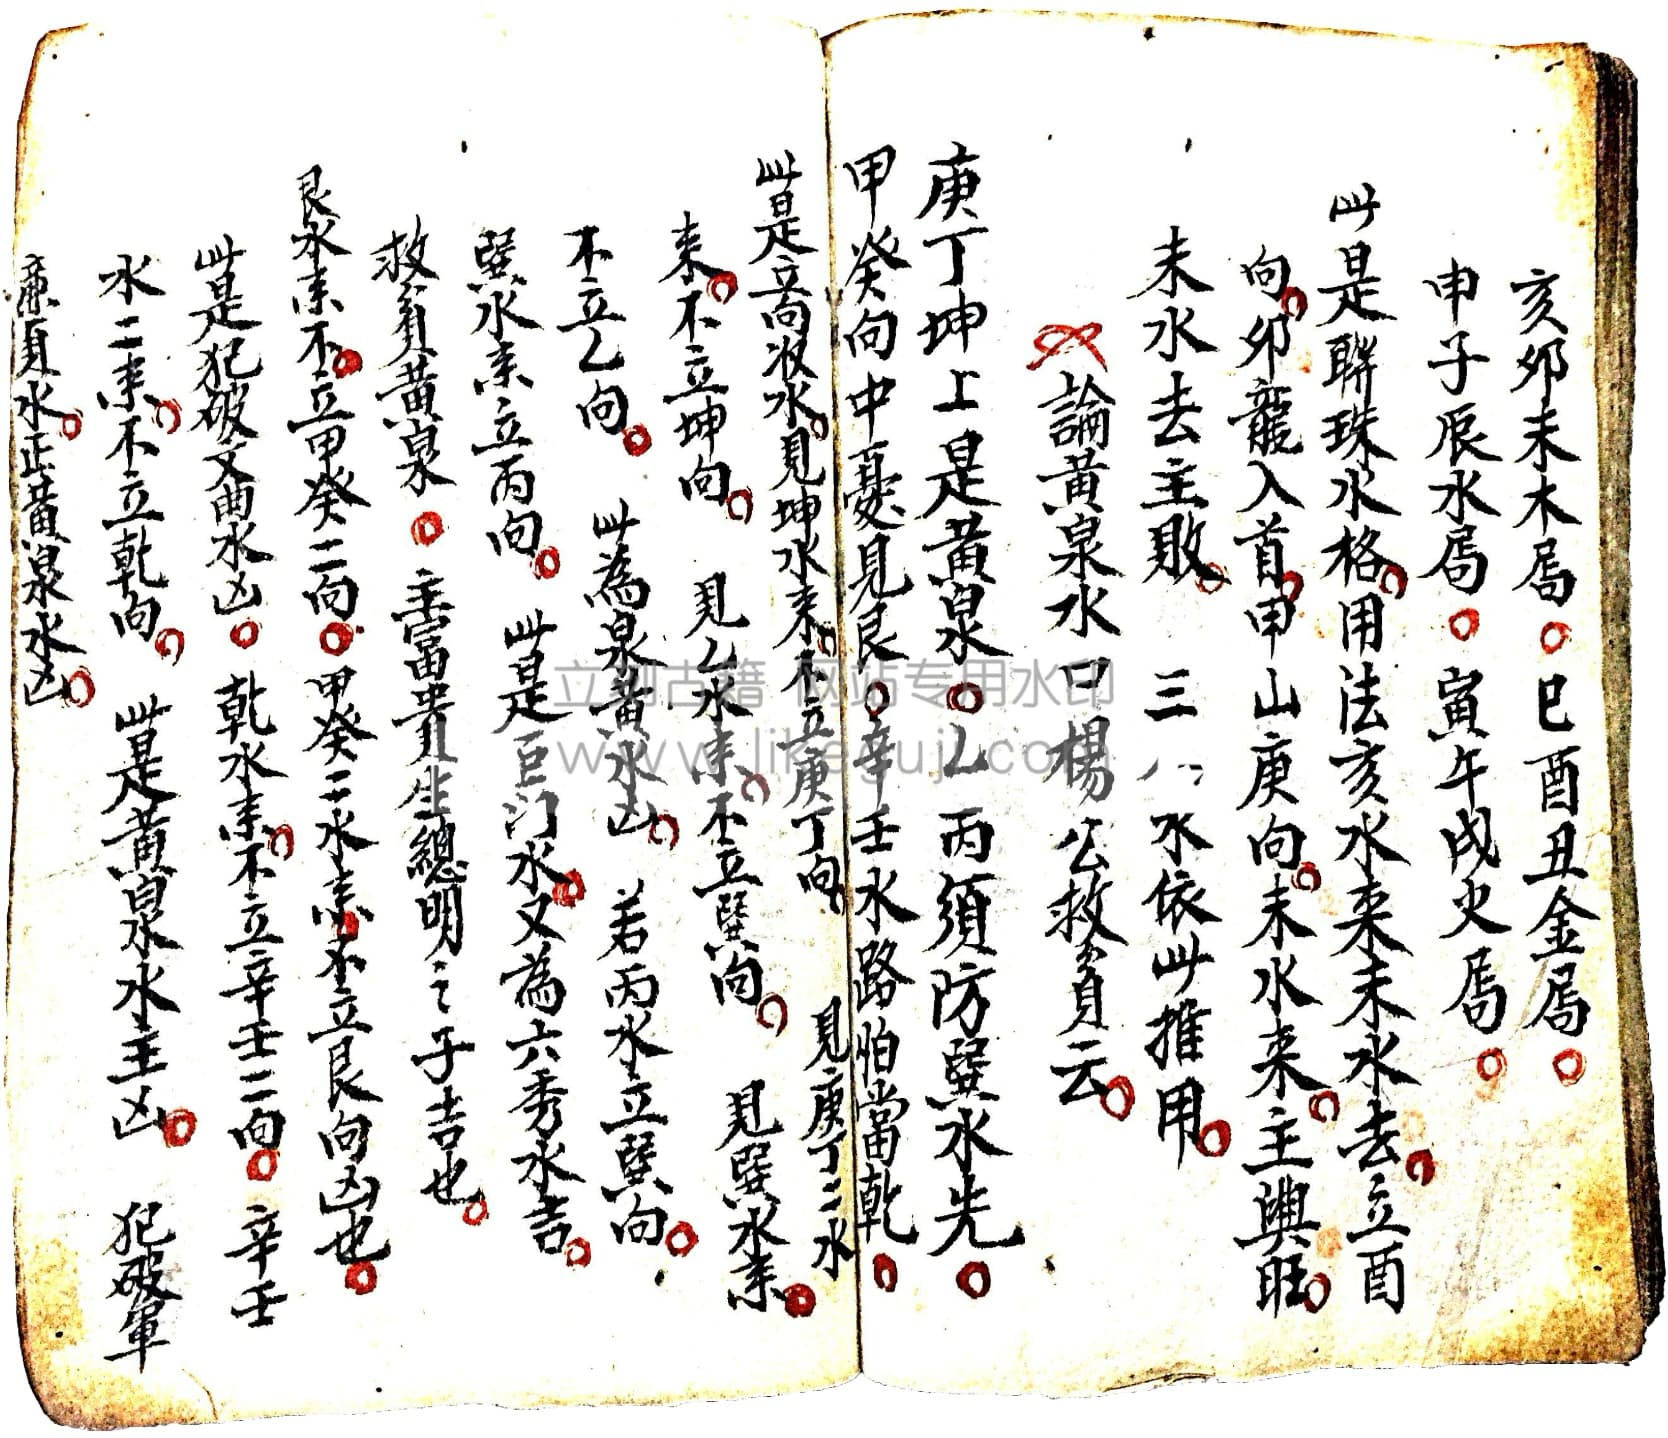 亥卯未木局○巳酉丑金局○
申子辰水局○寅午戌火局○
此是聯珠水格○用法亥水来未水去○立酉
向○卯龍入首○甲山庚向○未水来○主興旺○
未水去主敗○三 水依此推用○
論黃泉水曰楊公救貧云○
庚丁坤上是黃泉○乙丙須防巽水先○
甲癸向中憂見艮○辛壬水路怕當乾○
此是立向收水○見坤水来○不立庚丁向 見庚丁二水
来○不立坤向○ 見乙水来○不立巽向○ 見巽水来○
不立乙向○ 此為泉黃水凶○ 若丙水立巽向○
巽水来立丙向○ 此是巨门水○又為六秀水吉○
救貧黃泉○主富貴生總明之子吉也○
艮水来不○立甲癸二向○甲癸二水来○不立艮向凶也○
此是犯破文曲水凶○乾水来○不立辛壬二向○辛壬
水二来○不立乾向○ 此是黃泉水主凶○ 犯破軍
廉貞水○正黃泉水凶○
立刻古籍 网站专用水印
www.likeguji.com